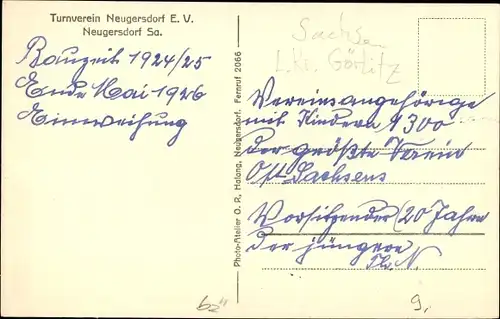 Turnverein Neugersdorf E. V.
Neugersdorf Sa.
Bauzeit 1924/25
Ende Mai 1926
Einweihung
Photo-Atelier O. R. Halang, Neugersdorf. Fernruf 2066
Sachsen
L. Kr. Görlitz
Vereinsangehörige
mit Kindern 1300
der größte Verein
Ost Sachsens
Vorsitzender (20 Jahre
der jüngere
Th. N.
9,